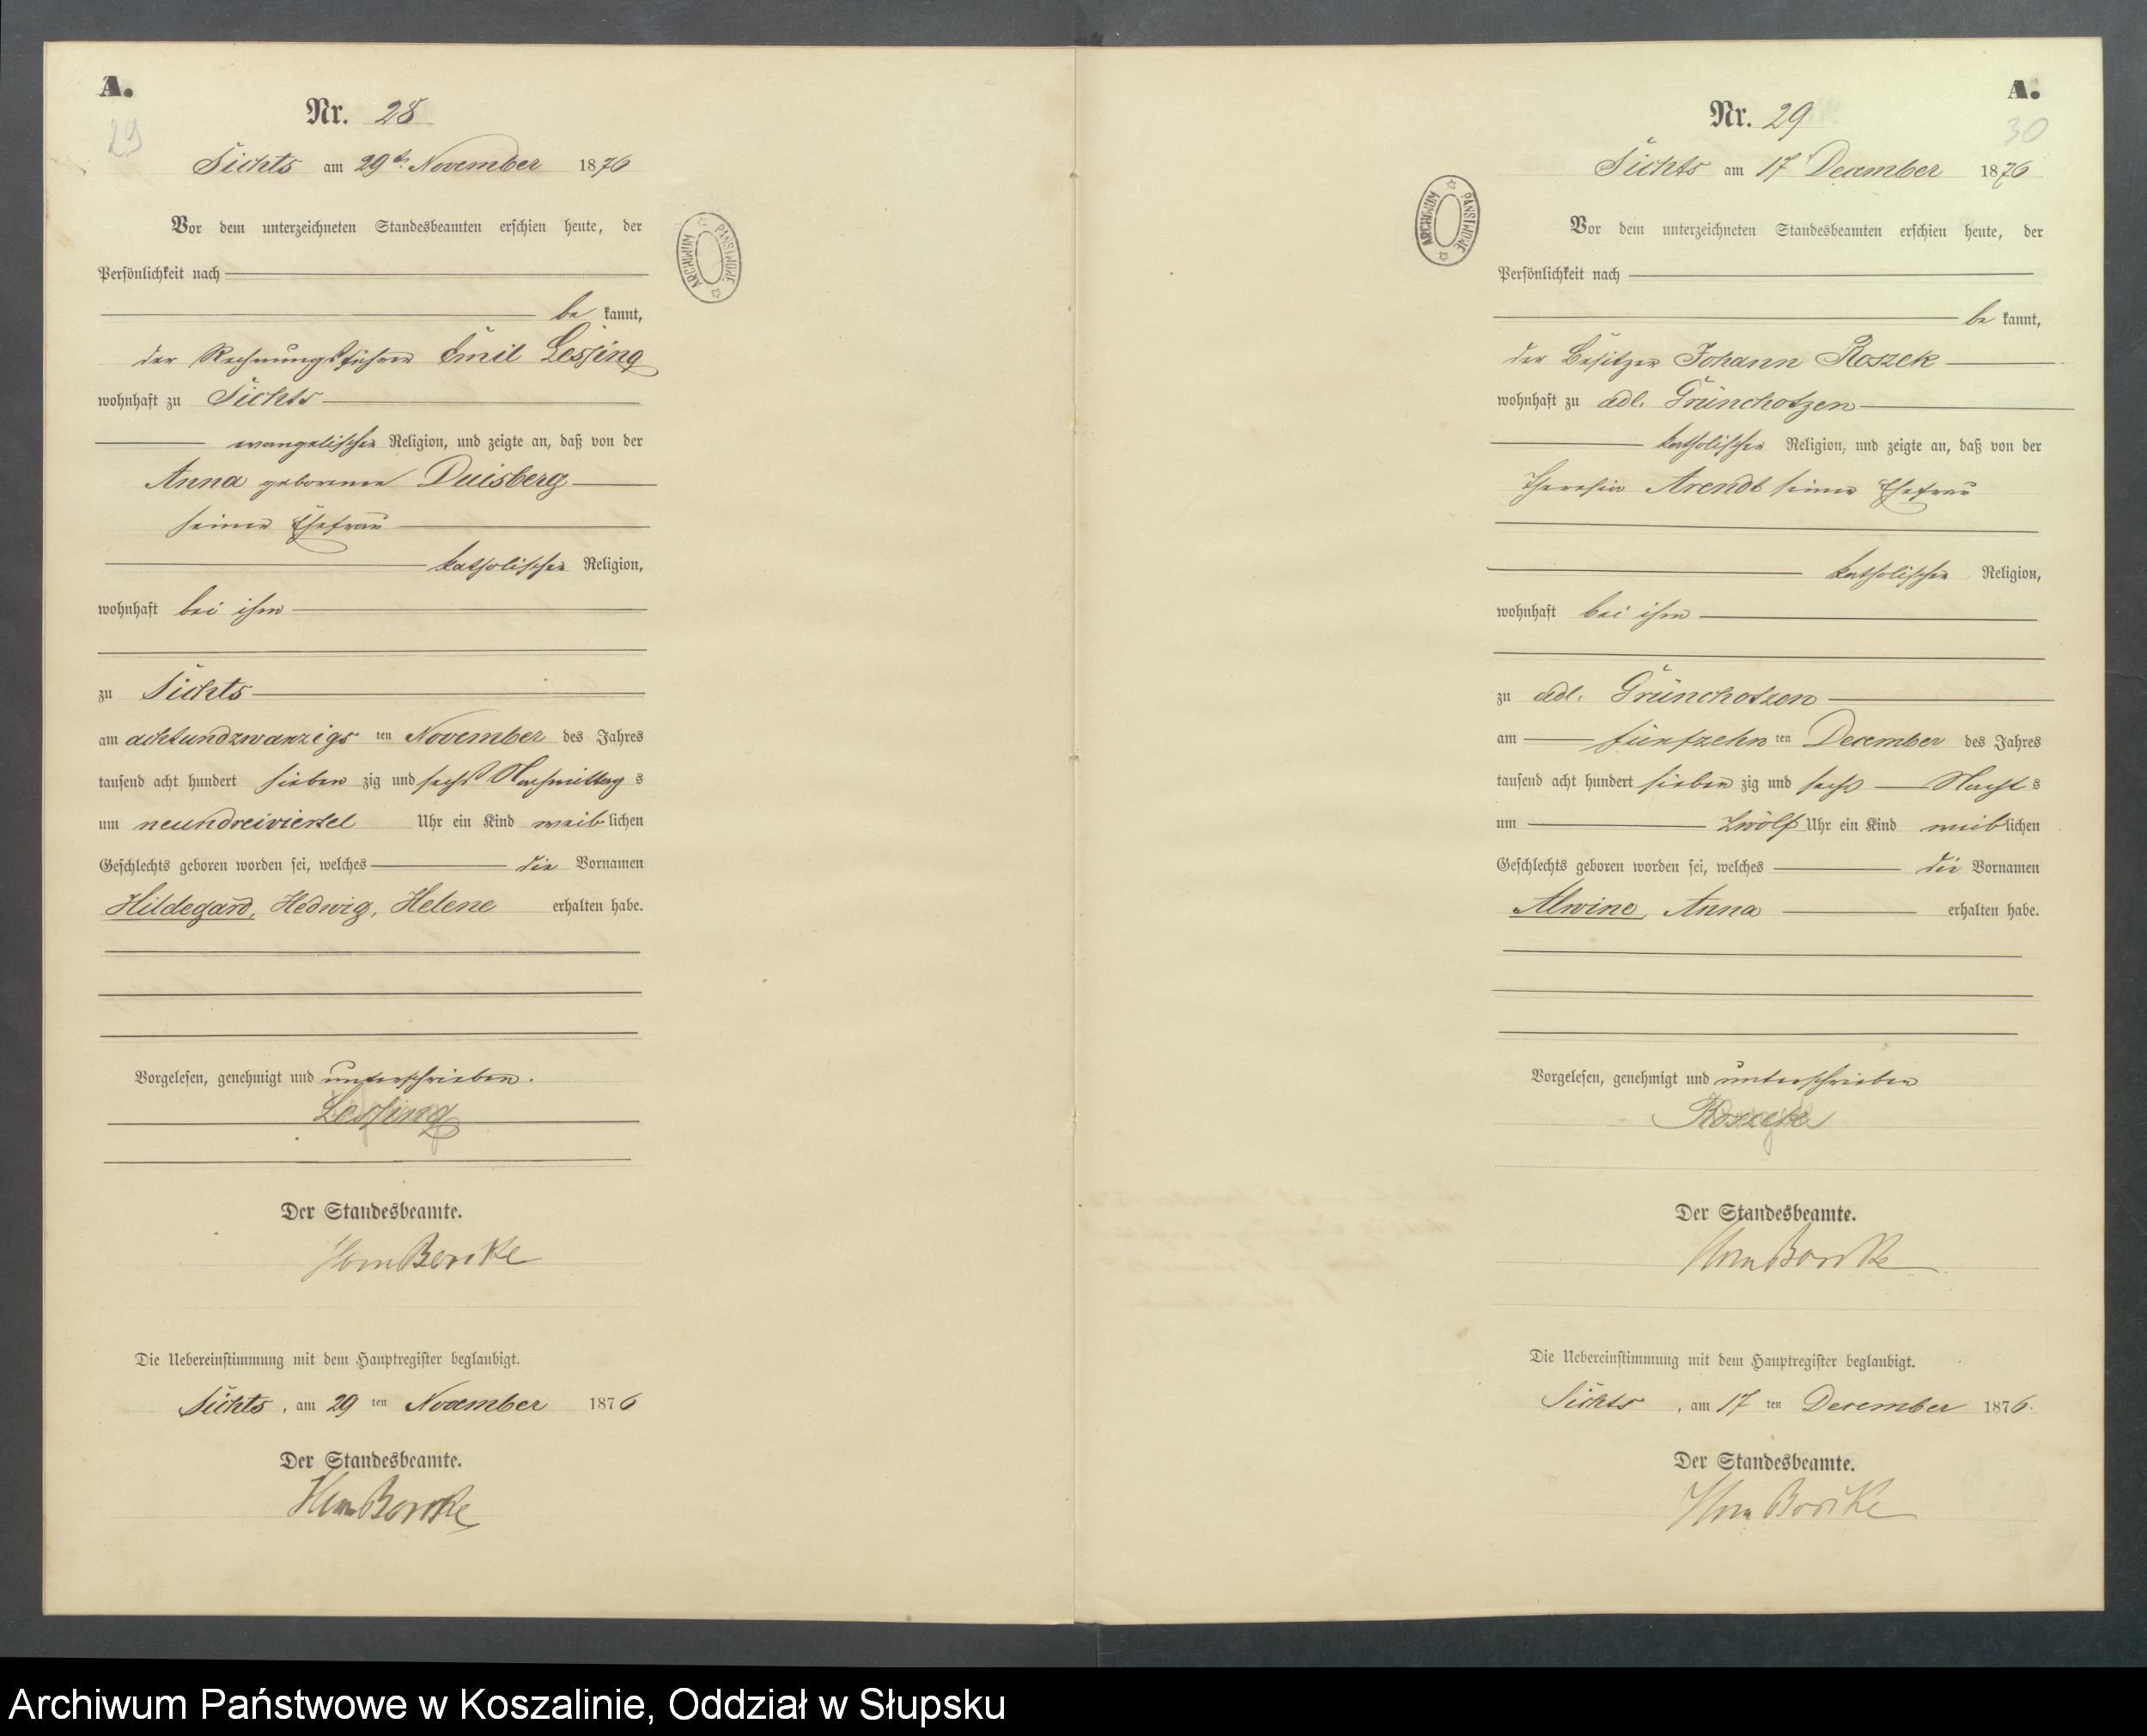 A.
29
Nr. 28
Sichts am 29t. November 1876
Vor dem unterzeichneten Standesbeamten erschien heute, der
Persönlichkeit nach
be kannt,
der Rechnungsführer Emil Lessing
wohnhaft zu Sichts
evangelischer Religion, und zeigte an, daß von der
Anna geborenen Duisberg
seiner Ehefrau
katholischer Religion,
wohnhaft bei ihm
zu Sichts
am achtundzwanzigs ten November des Jahres
tausend acht hundert sieben zig und sechs Nachmittag s
um neundreiviertel Uhr ein Kind weib lichen
Geschlechts geboren worden sei, welches die Vornamen
Hildegard, Hedwig, Helene erhalten habe.
Vorgelesen, genehmigt und unterschrieben.
Lessing
Der Standesbeamte.
Die Uebereinstimmung mit dem Hauptregister beglaubigt.
Sichts, am 29 ten November 1876
Der Standesbeamte.
ARCHIWUM PAŃSTWOWE
A.
30
Nr. 29
Sichts am 17 December 1876
Vor dem unterzeichneten Standesbeamten erschien heute, der
Persönlichkeit nach
be kannt,
der Besitzer Johann Roszek
wohnhaft zu adl. Grünchotzen
katholischer Religion, und zeigte an, daß von der
Theresia Arendt seiner Ehefrau
katholischer Religion,
wohnhaft bei ihm
zu adl. Grünchotzen
am fünfzehn ten December des Jahres
tausend acht hundert sieben zig und sechs Nacht s
um zwölf Uhr ein Kind weib lichen
Geschlechts geboren worden sei, welches die Vornamen
Alwine, Anna erhalten habe.
Vorgelesen, genehmigt und unterschrieben
Roszek
Der Standesbeamte.
Die Uebereinstimmung mit dem Hauptregister beglaubigt.
Sichts, am 17 ten December 1876.
Der Standesbeamte.
ARCHIWUM PAŃSTWOWE
Archiwum Państwowe w Koszalinie, Oddział w Słupsku